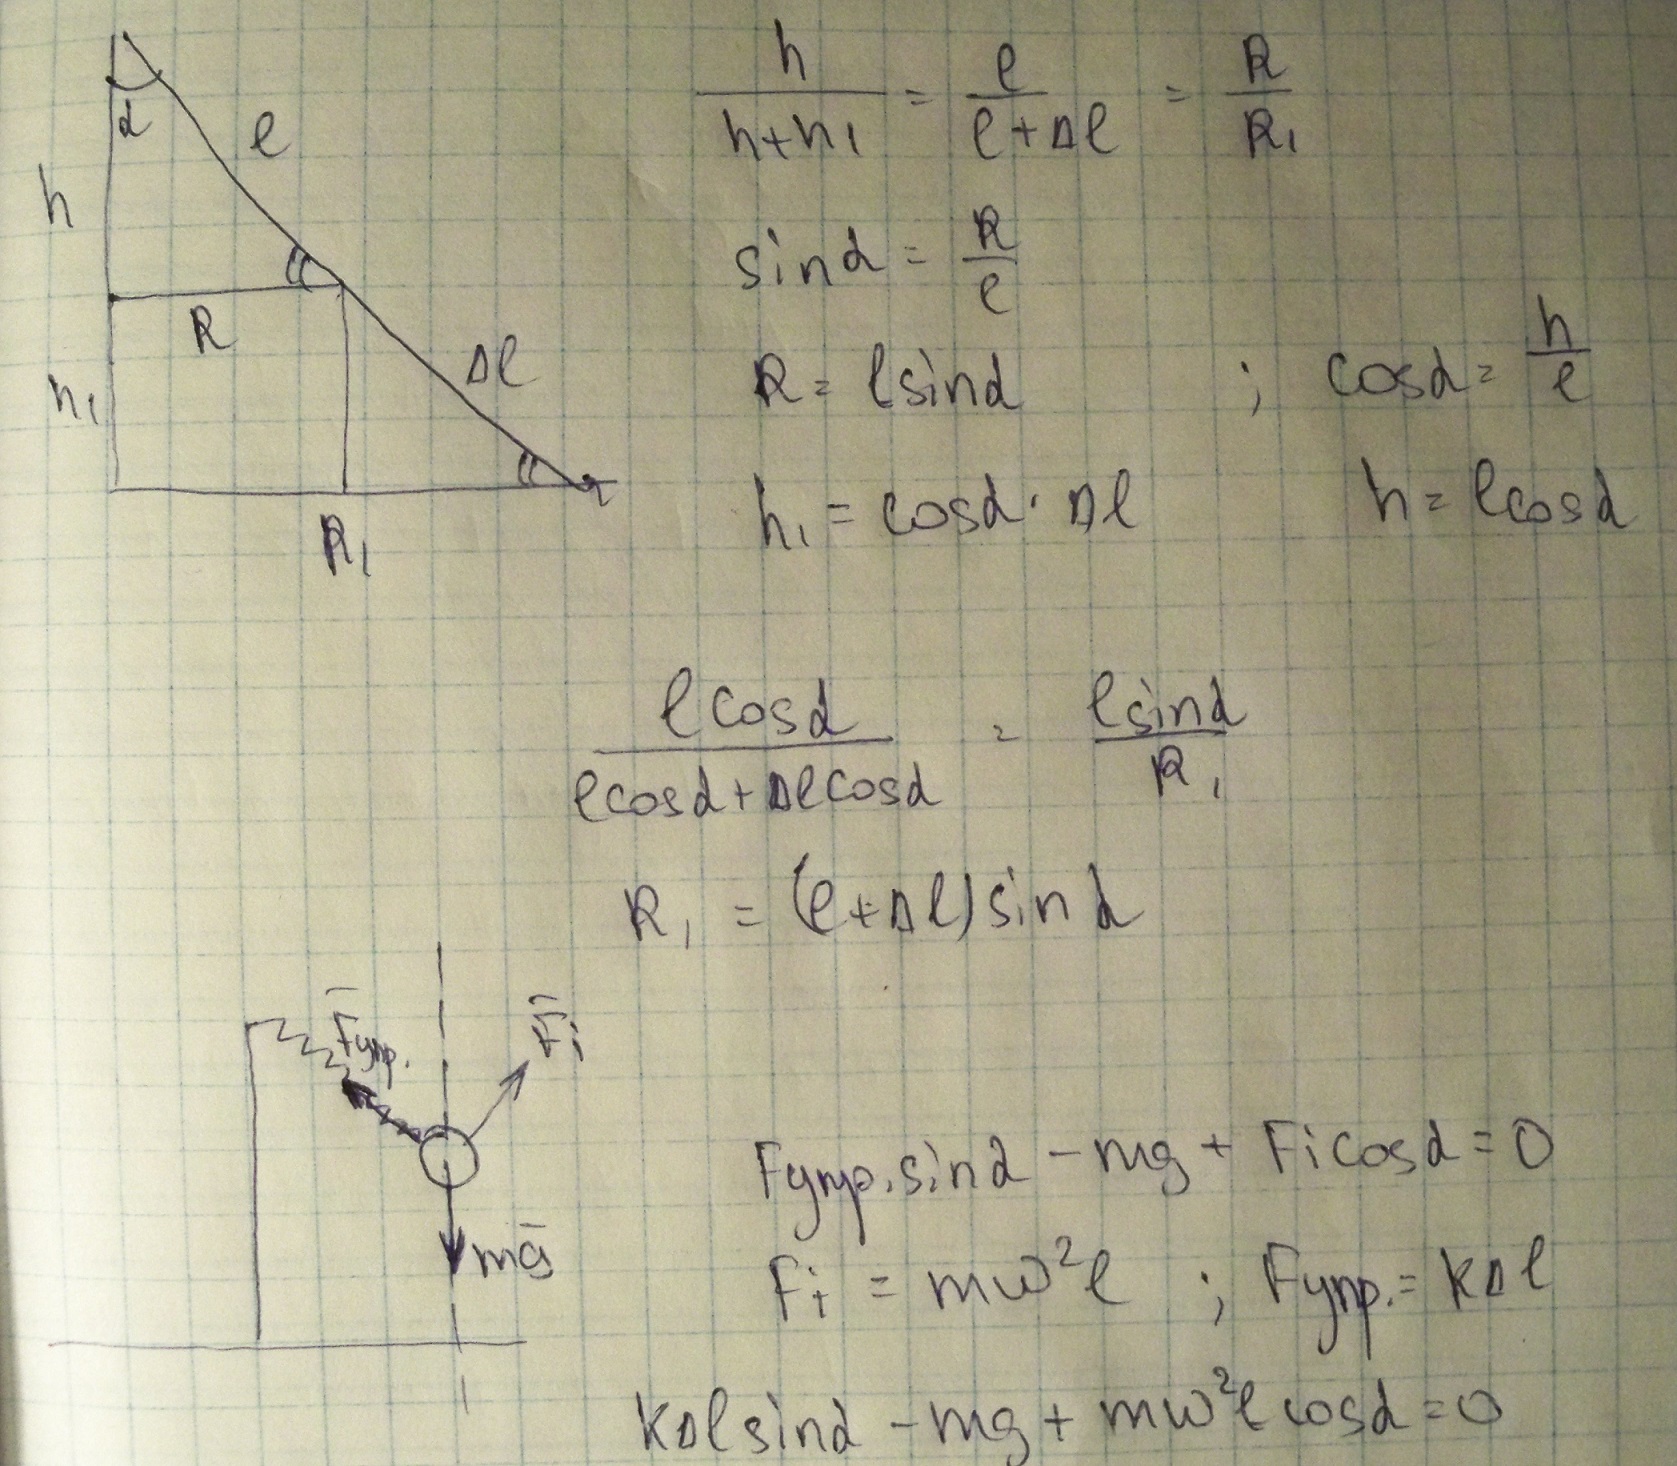 α
l
h
R
Δl
h₁
R₁
h/(h+h₁) = l/(l+Δl) = R/R₁
sinα = R/l
R = l sinα ; cosα = h/l
h₁ = cosα · Δl h = l cosα
l cosα/(l cosα + Δl cosα) = l sinα/R₁
R₁ = (l+Δl) sinα
F̄упр.
F̄i
mḡ
Fупр. sinα − mg + Fi cosα = 0
Fi = mω²l ; Fупр. = kΔl
kΔl sinα − mg + mω²l cosα = 0